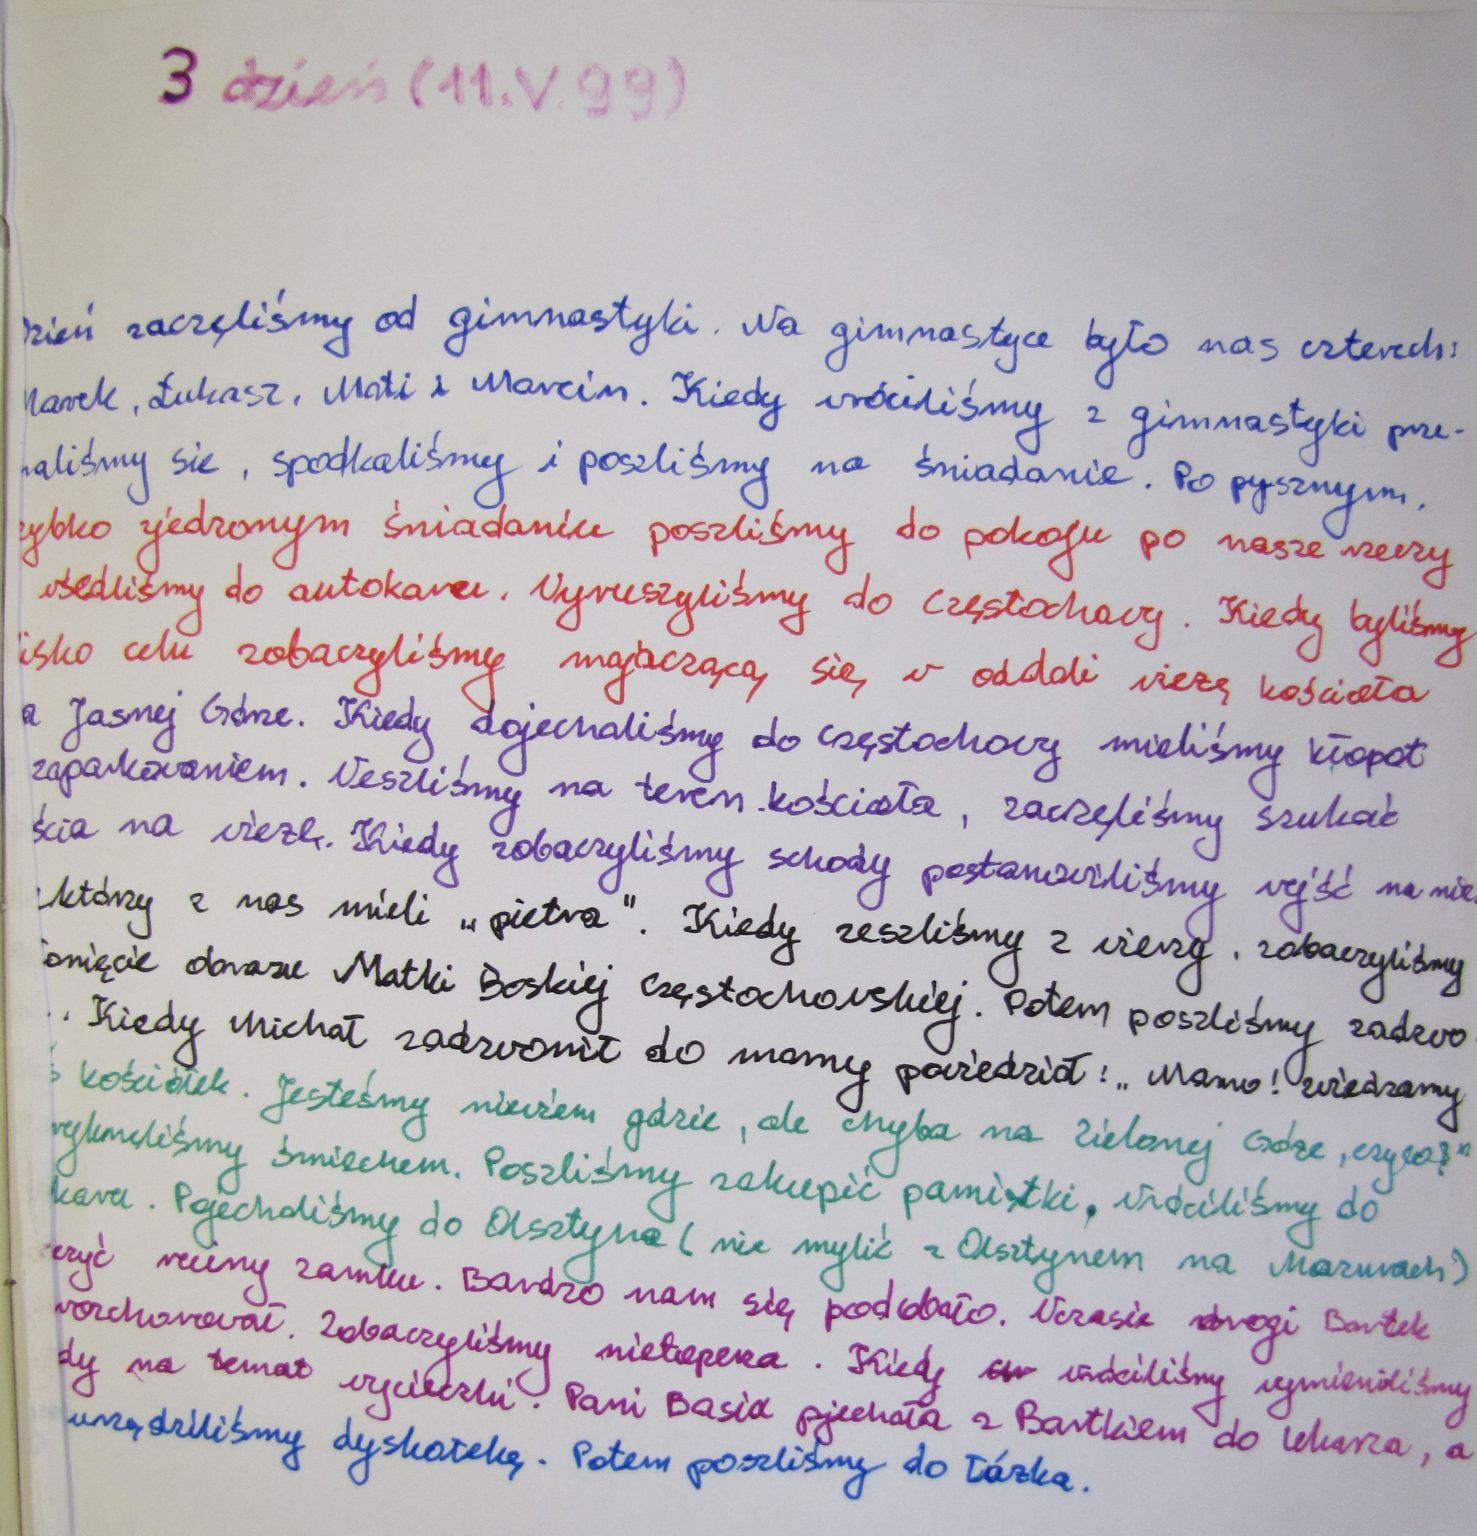 3 dzień (11.V.99)
dzień zaczęliśmy od gimnastyki. Na gimnastyce było nas czterech:
Marek, Łukasz, Mati i Marcin. Kiedy wróciliśmy z gimnastyki prze-
raliśmy sie, spodkaliśmy i poszliśmy na śniadanie. Po pysznym,
zybko zjedzonym śniadaniu poszliśmy do pokoju po nasze rzeczy
wsedliśmy do autokaru. Wyruszyliśmy do Częstochowy. Kiedy byliśmy
isko celu zobaczyliśmy majaczącą się w oddali wieżę kościoła
a Jasnej Górze. Kiedy dojechaliśmy do Częstochowy mieliśmy kłopot
zaparkowaniem. Weszliśmy na teren kościoła, zaczęliśmy szukać
ścia na wieżę. Kiedy zobaczyliśmy schody postanowiliśmy wejść na nie.
którzy z nas mieli „pietra". Kiedy zeszliśmy z wieży, zobaczyliśmy
onięcie obrazu Matki Boskiej Częstochowskiej. Potem poszliśmy zadzwo
. Kiedy Michał zadzwonił do mamy powiedział: „Mamo! zwiedzamy
ś kościółek. Jesteśmy niewiem gdzie, ale chyba na Zielonej Górze, czy co?"
ryknęliśmy śmiechem. Poszliśmy zakupić pamiątki, wróciliśmy do
karu. Pojechaliśmy do Olsztyna (nie mylić z Olsztynem na Mazurach)
czyć ruiny zamku. Bardzo nam się podobało. Wczasie drogi Bartek
rozchorował. Zobaczyliśmy nietopeza. Kiedy wróciliśmy wymieniliśmy
dy na temat wycieczki. Pani Basia pjechała z Bartkiem do lekarza, a
urządziliśmy dyskotekę. Potem poszliśmy do łózka.